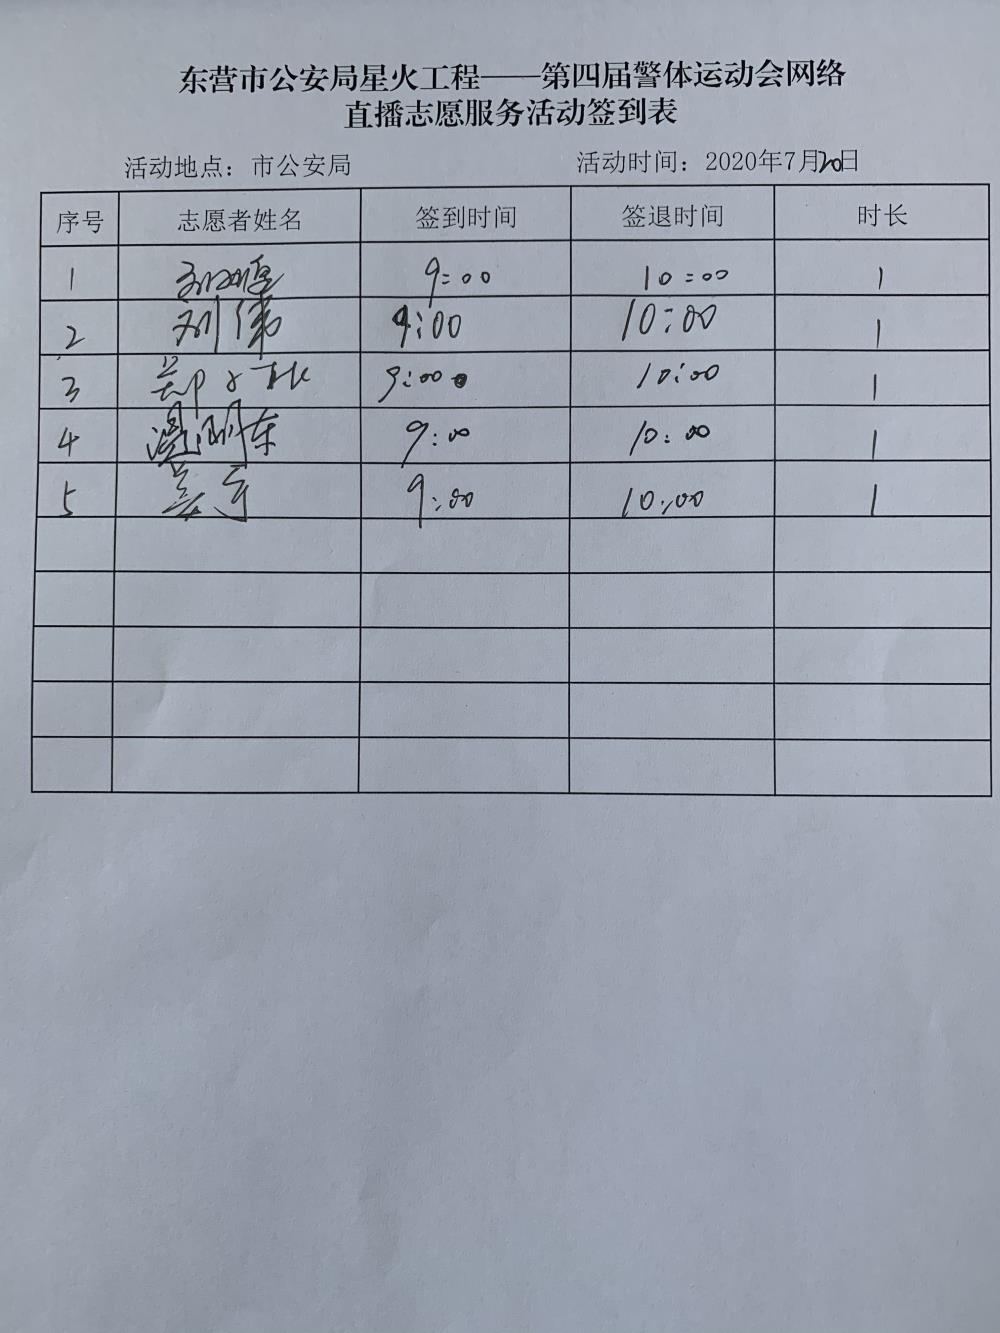 东营市公安局星火工程——第四届警体运动会网络
直播志愿服务活动签到表
活动地点：市公安局 活动时间：2020年7月20日
序号 志愿者姓名 签到时间 签退时间 时长
1 9:00 10:00 1
2 刘伟 9:00 10:00 1
3 9:00 10:00 1
4 9:00 10:00 1
5 9:00 10:00 1